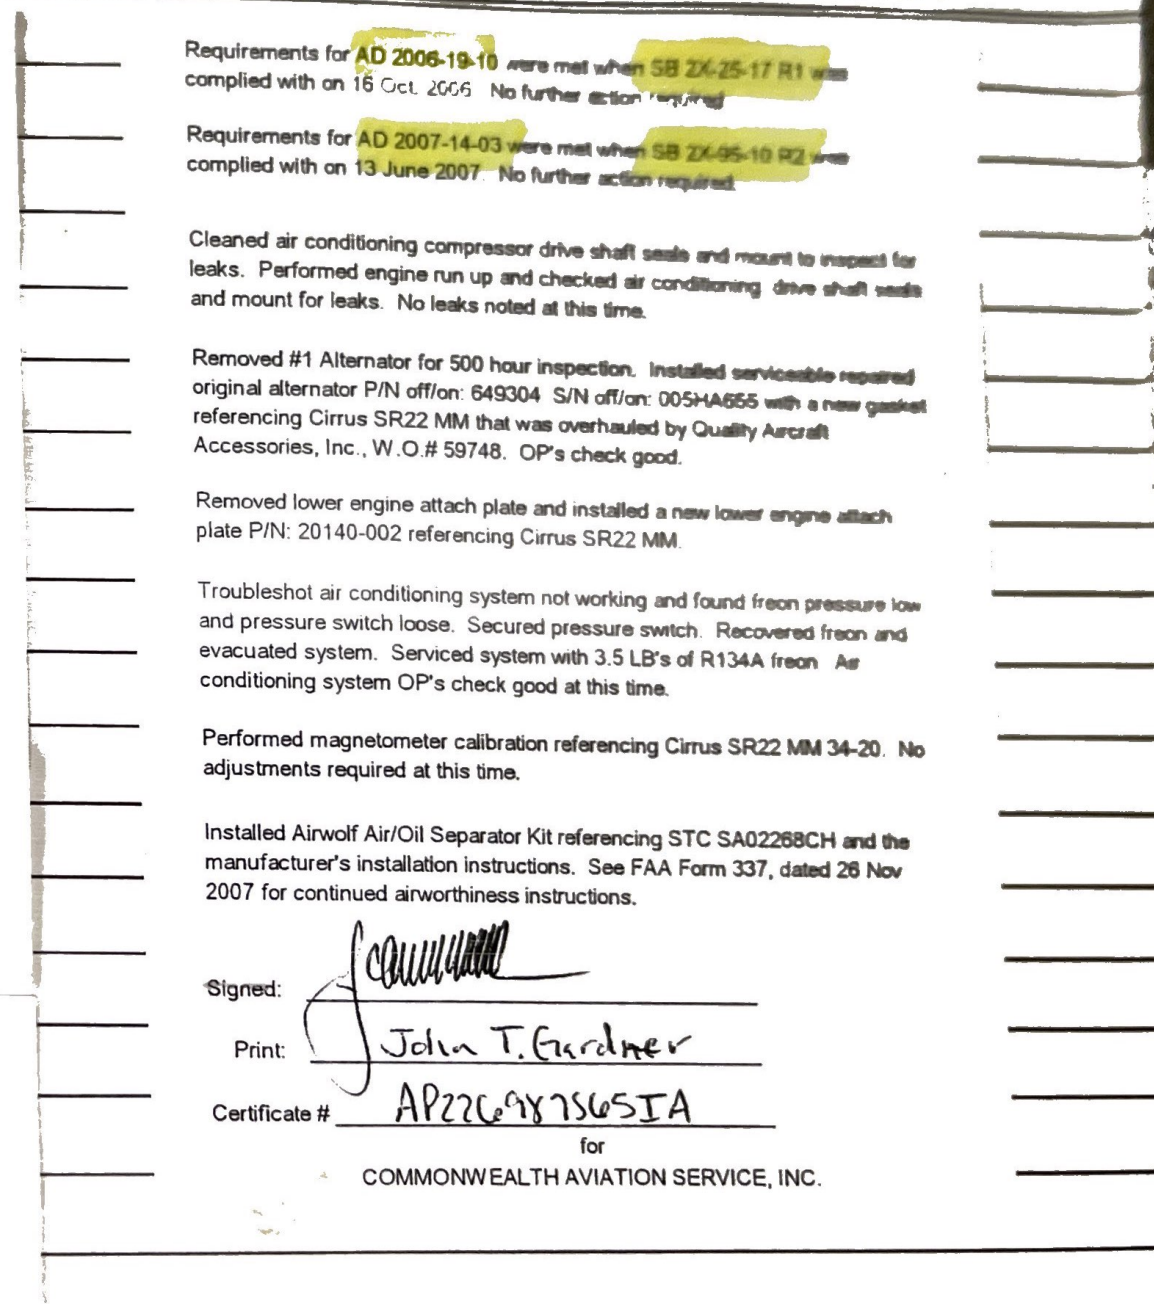 Requirements for AD 2006-19-10 were met when SB 2X-25-17 R1 was
complied with on 16 Oct. 2006 No further action required
Requirements for AD 2007-14-03 were met when SB 2X-95-10 R2 was
complied with on 13 June 2007. No further action required.
Cleaned air conditioning compressor drive shaft seals and mount to inspect for
leaks. Performed engine run up and checked air conditioning drive shaft seals
and mount for leaks. No leaks noted at this time.
Removed #1 Alternator for 500 hour inspection. Installed serviceable repaired
original alternator P/N off/on: 649304 S/N off/on: 005HA655 with a new gasket
referencing Cirrus SR22 MM that was overhauled by Quality Aircraft
Accessories, Inc., W.O.# 59748. OP's check good.
Removed lower engine attach plate and installed a new lower engine attach
plate P/N: 20140-002 referencing Cirrus SR22 MM.
Troubleshot air conditioning system not working and found freon pressure low
and pressure switch loose. Secured pressure switch. Recovered freon and
evacuated system. Serviced system with 3.5 LB's of R134A freon Air
conditioning system OP's check good at this time.
Performed magnetometer calibration referencing Cirrus SR22 MM 34-20. No
adjustments required at this time.
Installed Airwolf Air/Oil Separator Kit referencing STC SA02268CH and the
manufacturer's installation instructions. See FAA Form 337, dated 26 Nov
2007 for continued airworthiness instructions.
Signed:
Print: John T. Gardner
Certificate #
for
COMMONWEALTH AVIATION SERVICE, INC.